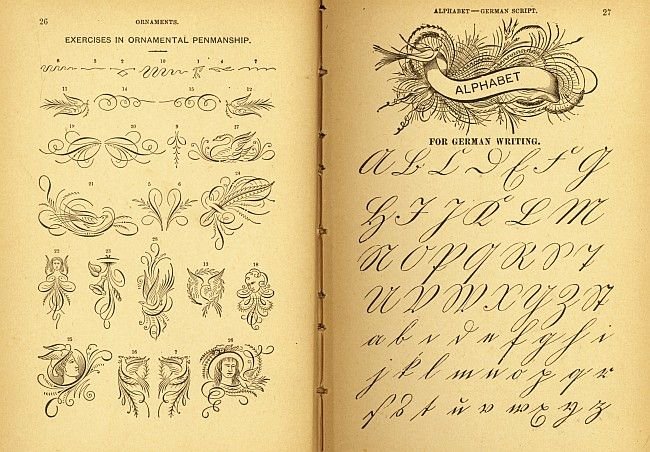 26 ORNAMENTS.
EXERCISES IN ORNAMENTAL PENMANSHIP.
10 3 1 4 7
11 14 15 12
19 20 9 27
21 5 6
22 23 13 18
25 16 26
ALPHABET—GERMAN SCRIPT. 27
ALPHABET
FOR GERMAN WRITING.
A B C D E F G
H I J K L M
N O P Q R S T
U V W X Y Z
a b c d e f g h i
j k l m n o p q r
ſ s t u v w x y z